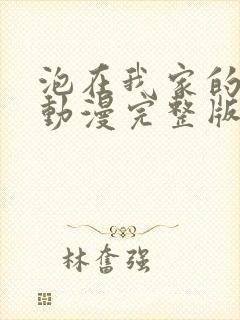 泡在我家的
動漫完整版
林奮強